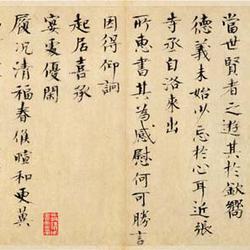 當世賢者之遊其於欽嚮
德義未始以忘於心耳近張
寺丞自洛來出
所惠書其為感慰何可勝言
因得仰詢
起居喜承
宴處優閑
履況清福春候暄和更冀